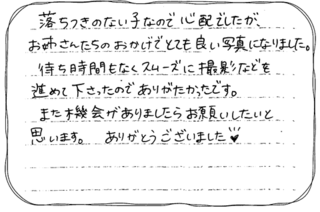 落ちつきのない子なので心配でしたが、
お姉さんたちのおかげでとても良い写真になりました。
待ち時間もなくスムーズに撮影などを
進めて下さったのでありがたかったです。
また機会がありましたらお願いしたいと
思います。 ありがとうございました♥